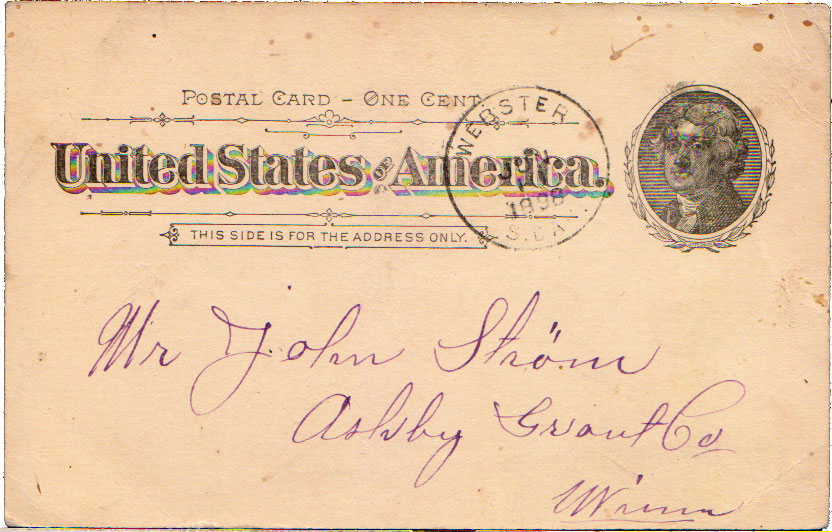 POSTAL CARD – ONE CENT.
United States of America.
THIS SIDE IS FOR THE ADDRESS ONLY.
WEBSTER
JUN
1
1898
S.DA
Mr John Ström
Ashby Grant Co
Minn